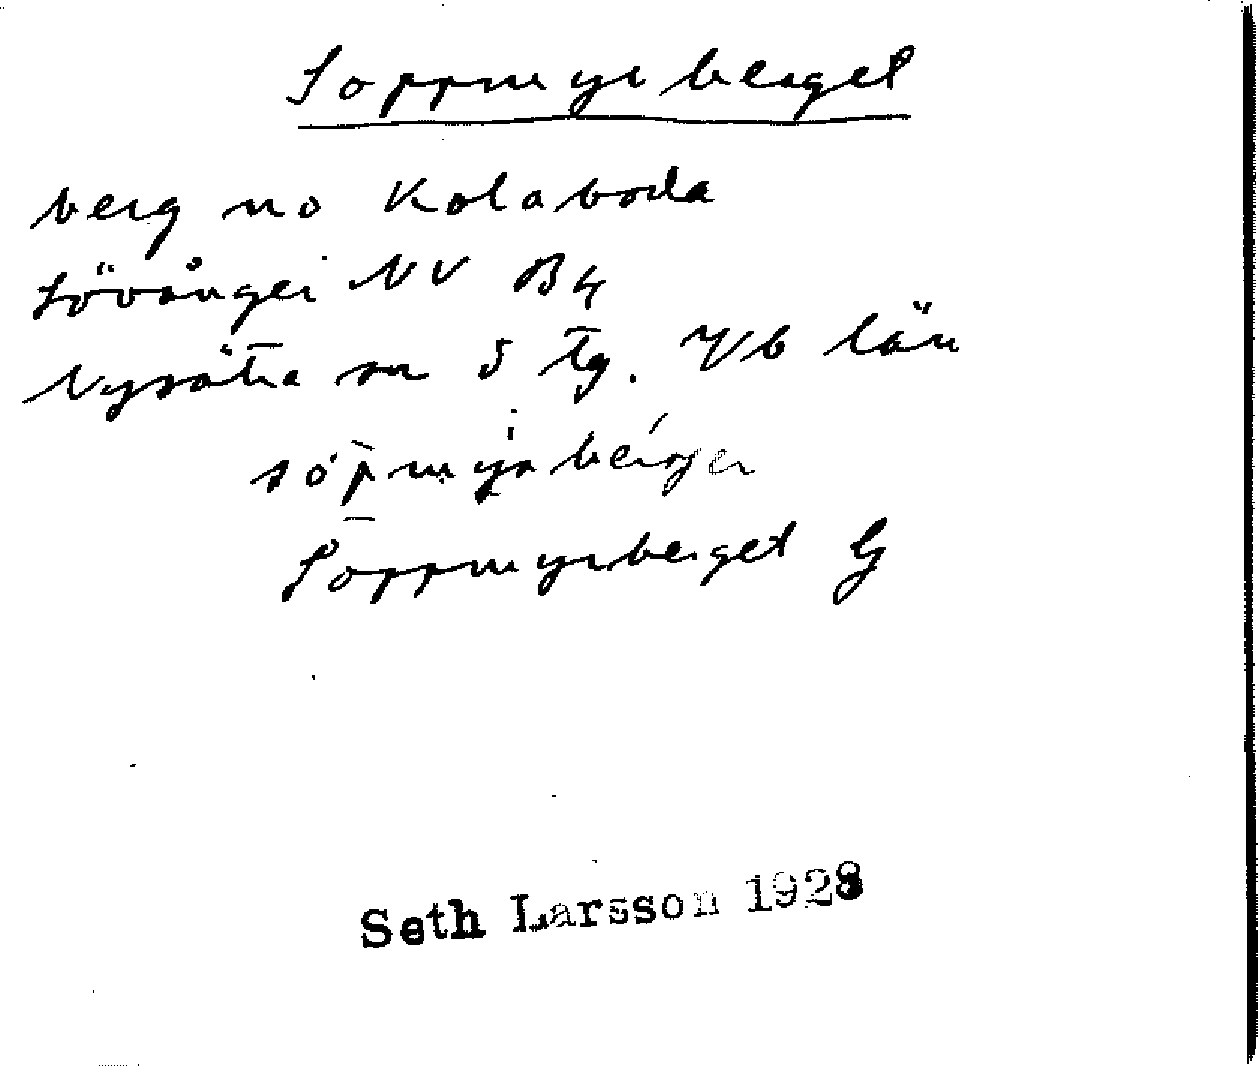 Soppmyrberget
berg no Kolaboda
Lövånger NV B4
Nysätra sn S Tg. Vb län
söp̄myrbérger
Soppmyrberget G
Seth Larsson 1928